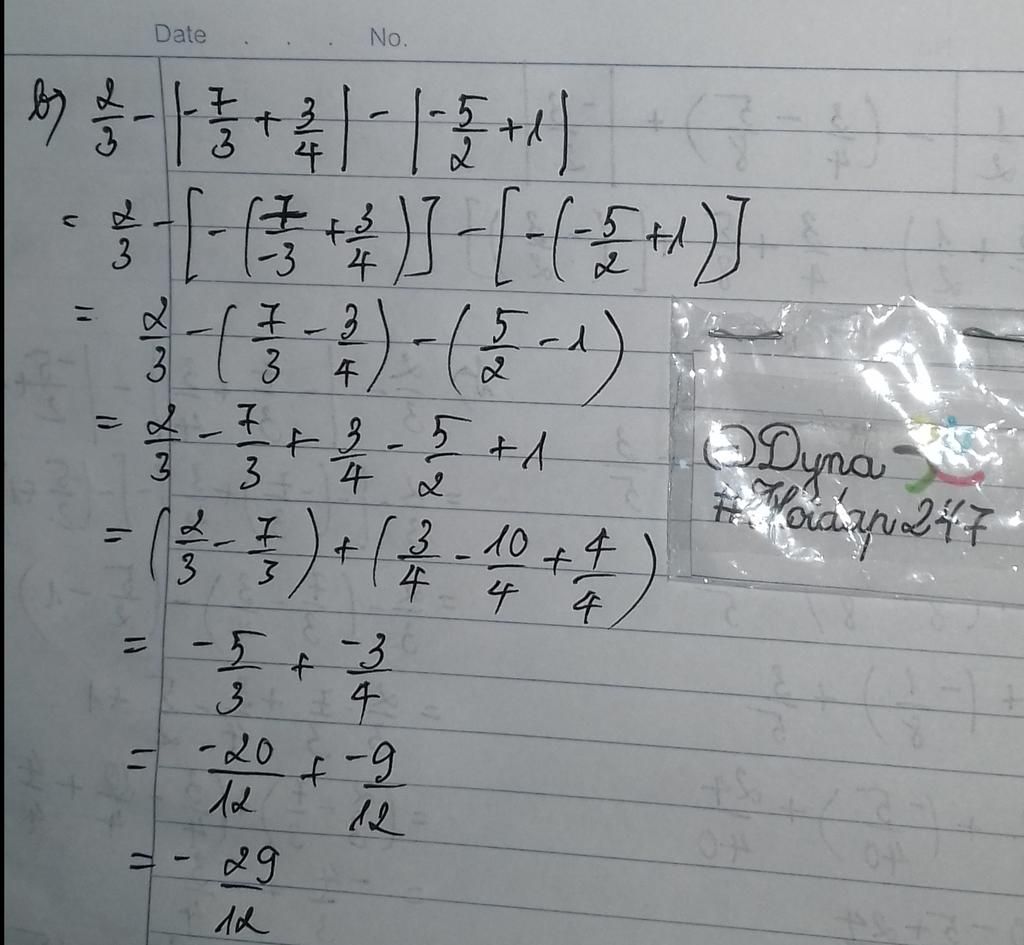 Date . . . No.
b) 2/3 - |-7/3 + 3/4| - |-5/2 + 1|
= 2/3 - [-(7/-3 + 3/4)] - [-(-5/2 + 1)]
= 2/3 - (7/3 - 3/4) - (5/2 - 1)
= 2/3 - 7/3 + 3/4 - 5/2 + 1
= (2/3 - 7/3) + (3/4 - 10/4 + 4/4)
= -5/3 + -3/4
= -20/12 + -9/12
= - 29/12
Dyna
#Hoidap247